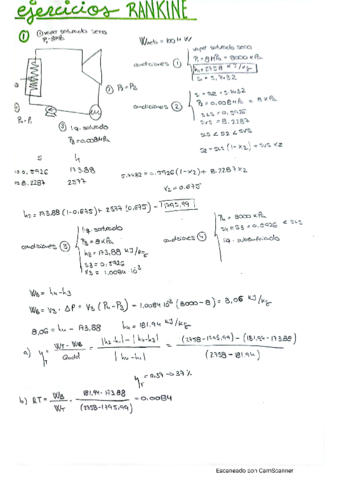 ejercicios RANKINE
① ① vapor saturado seco
P1=8MPa
Wneto = 100 MW
condiciones ① vapor saturado seco
P1 = 8MPa = 8000 kPa
h1 = 2758 kJ/kg
s1 = 5.7432
② P2 = P3
condiciones ② s1 = s2 = 5.7432
P2 = 0.008 MPa = 8 kPa
sLS = 0.5926
sVS = 8.2287
sLS < s2 < sVS
s2 = sLS (1-x2) + sVS x2
P4 = P1
③ liq. saturado
P3 = 0.008 MPa
s h
0.5926 173.88
8.2287 2577
5.7432 = 0.5926 (1-x2) + 8.2287 x2
x2 = 0.675
h2 = 173.88 (1-0.675) + 2577 (0.675) = 1795.99
condiciones ③ liq. saturado
P3 = 8 kPa
h3 = 173.88 kJ/kg
s3 = 0.5926
v3 = 1.0084 10⁻³
condiciones ④ P4 = 8000 kPa
s4 = s3 = 0.5926 < sLS
liq. subenfriado
WB = h4 - h3
WB = v3 · ΔP = v3 (P4 - P3) = 1.0084 10⁻³ (8000 - 8) = 8.06 kJ/kg
8.06 = h4 - 173.88 h4 = 181.94 kJ/kg
a) η = (WT - WB) / Qadd = (|h2-h1| - |h4-h3|) / |h4-h1| = ((2758 - 1795.99) - (181.94 - 173.88)) / (2758 - 181.94)
η = 0.37 → 37 %
b) RT = WB / WT = (181.94 - 173.88) / (2758 - 1795.99) = 0.0084
Escaneado con CamScanner